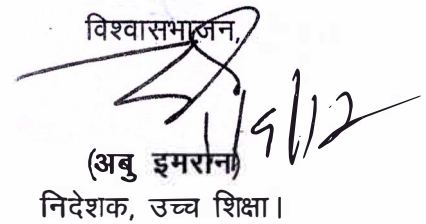 विश्वासभाजन,
9/12
(अबु इमरान)
निदेशक, उच्च शिक्षा।